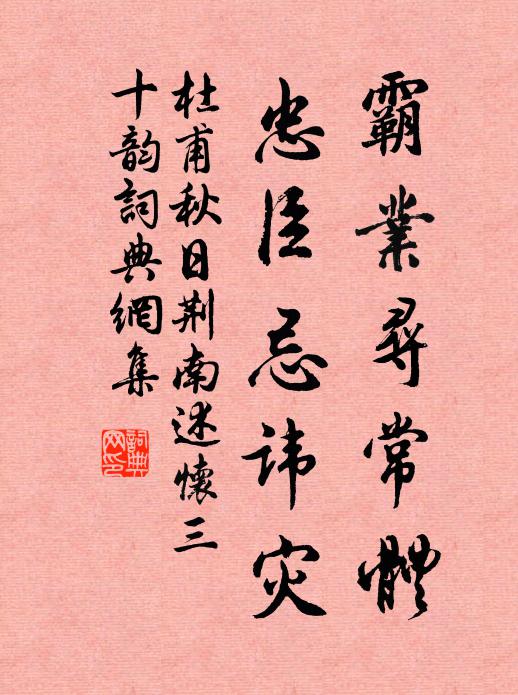 霸業尋常體
忠臣忌諱灾
杜甫秋日荆南述懷三
十韵詞典網集
詞典
网印